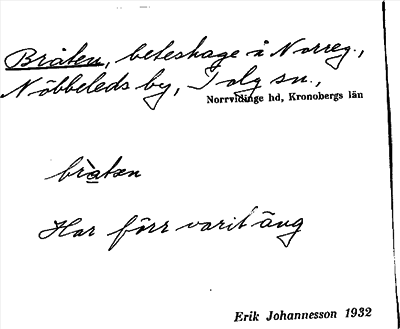 Bråten, beteshage å Norreg.,
Nöbbeleds by, Tolg sn.,
Norrvidinge hd, Kronobergs län
bràtæn
Har förr varit äng
Erik Johannesson 1932